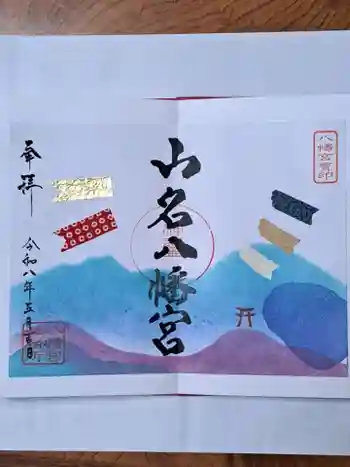 八幡宮寳印
山名八幡宮
奉拝
令和八年五月三日